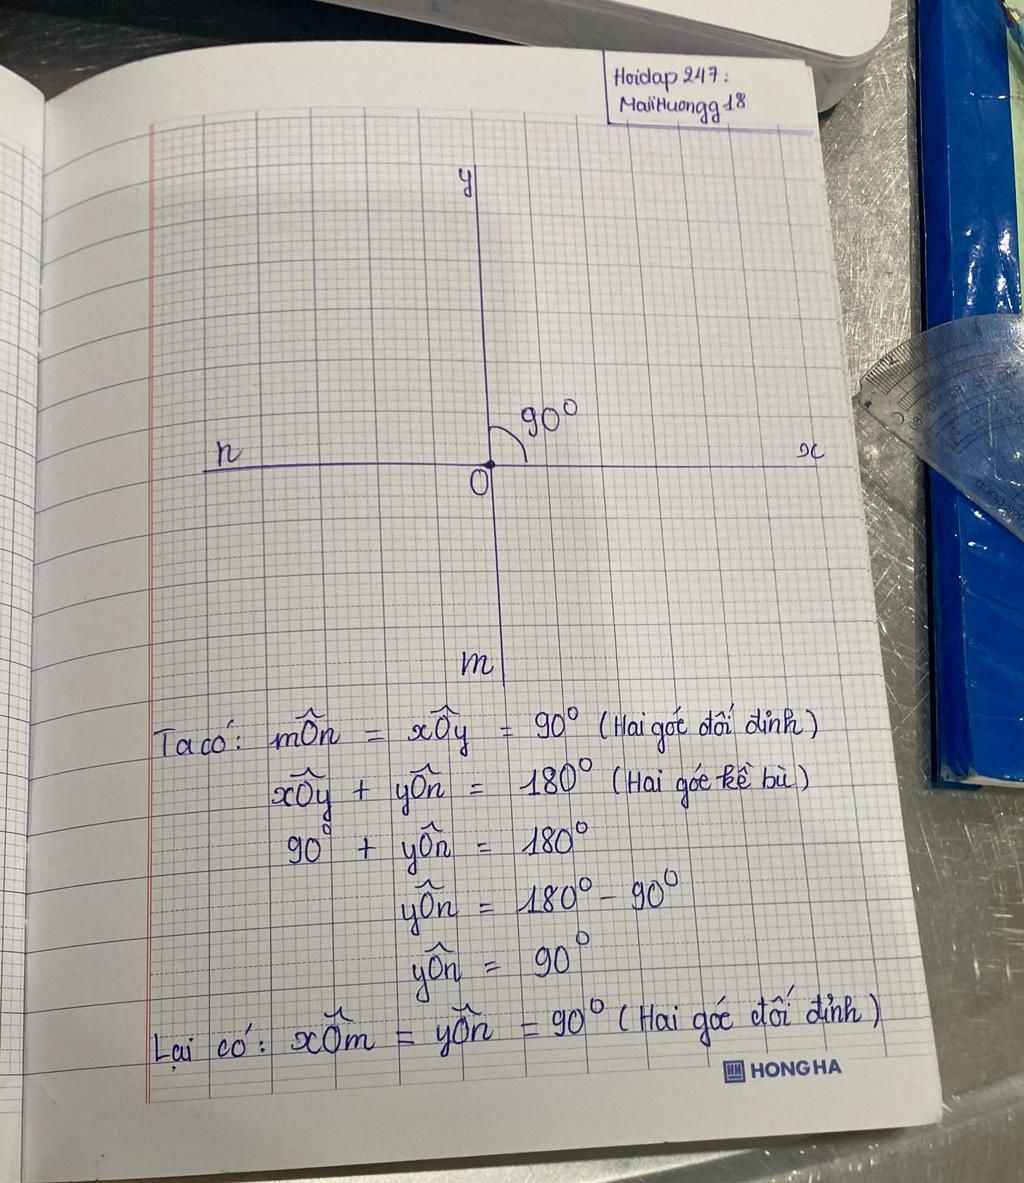 Hoidap 247:
MaiiHuongg18
y
90⁰
n
x
O
m
Ta có: mÔn = xÔy = 90⁰ (Hai góc đối đỉnh)
xÔy + yÔn = 180⁰ (Hai góc kề bù)
90⁰ + yÔn = 180⁰
yÔn = 180⁰ - 90⁰
yÔn = 90⁰
Lại có: xÔm = yÔn = 90⁰ (Hai góc đối đỉnh)
HONG HA